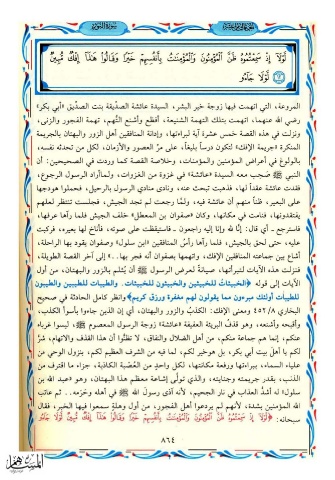 لَّوْلَا إِذْ سَمِعْتُمُوهُ ظَنَّ الْمُؤْمِنُونَ وَالْمُؤْمِنَاتُ بِأَنفُسِهِمْ خَيْرًا وَقَالُوا هَٰذَا إِفْكٌ مُّبِينٌ
لَّوْلَا جَاءُو
المروعة، التي اتهمت فيها زوجة خير البشر، السيدة عائشة الصدّيقة بنت الصدّيق «أبي بكر»
رضي الله عنهما، اتهمت بتلك التهمة الشنيعة، أفظع وأشنع التُّهم، تهمة الفجور والزنى،
ونزلت في هذه القصة خمس عشرة آية لبراءتها، وإدانة المنافقين أهل الزور والبهتان بالجريمة
المنكرة «جريمة الإفك» لتكون درساً بليغاً، على مرّ العصور والأزمان، لكل من تحدثه نفسه،
بالولوغ في أعراض المؤمنين والمؤمنات، وخلاصة القصة كما وردت في الصحيحين: أن
النبي ﷺ صحب معه السيدة «عائشة» في غزوة من الغزوات، ولما أراد الرسول الرجوع،
فقدت عائشة عقداً لها، فذهبت تبحث عنه، ونادى منادي الرسول بالرحيل، فحملوا هودجها
على البعير، ظنّاً منهم أن عائشة فيه، ولمّا رجعت لم تجد الجيش، فجلست تنتظر لعلهم
يفتقدونها، فنامت في مكانها، وكان «صفوان بن المعطل» خلف الجيش فلما رآها عرفها،
فاسترجع - أي قال: إنا لله وإنا إليه راجعون - فاستيقظت على صوته، فأناخ لها بعيره، فركبت
عليه، حتى لحق بالجيش، فلما رآها رأسُ المنافقين «ابن سلول» وصفوان يقود بها الراحلة،
أشاع بين جماعته المنافقين الإفك، واتهمها بصفوان أنه فجر بها.. إلى آخر القصة الطويلة،
فنزلت هذه الآيات لتبرأتها، صيانةً لعرض الرسول ﷺ أن يُثلم بالزور والبهتان، من أول
الآيات إلى قوله ﴿الخبيثات للخبيثين والخبيثون للخبيثات.. والطيبات للطيبين والطيبون
للطيبات أولئك مبرءون مما يقولون لهم مغفرة ورزق كريم﴾ وانظر كامل الحادثة في صحيح
البخاري ٤٥٢/٨ ومعنى الإفك: الكذبُ والزور والبهتان، أي إن الذين جاءوا بأسوأ الكذب،
وأقبحه وأشنعه، وهو قذفُ البريئة العفيفة «عائشة» زوجة الرسول المعصوم ﷺ، ليسوا غرباء
عنكم، إنما هم جماعة منكم، من أهل الضلال والنفاق، لا تظنُّوا أن هذا القذف والاتهام، شرٌّ
لكم يا أهل بيت أبي بكر، بل هو خير لكم، لما فيه من الشرف العظيم لكم، بنزول الوحي من
علياء السماء، ببراءتها ورفعة مكانتها، لكل واحدٍ من العُصبة الكاذبة، جزاء ما اقترف من
الذنب، بقدر جريمته وجنايته، والذي تولَّى إشاعة معظم هذا البهتان، وهو «عبد الله بن
سلول» له أشدُّ العذاب في نار الجحيم، لأنه آذى رسولَ الله ﷺ في أهله وحُرمه.. ثم عاتب
الله المؤمنين بشدة، لأنهم لم يردعوا أهل الفجور، من أول وهلةٍ سمعوا فيها الخبر، فقال
سبحانه: ﴿لَّوْلَا إِذْ سَمِعْتُمُوهُ ظَنَّ الْمُؤْمِنُونَ وَالْمُؤْمِنَاتُ بِأَنفُسِهِمْ خَيْرًا وَقَالُوا هَٰذَا إِفْكٌ مُّبِينٌ لَّوْلَا جَاءُو
٨٦٤